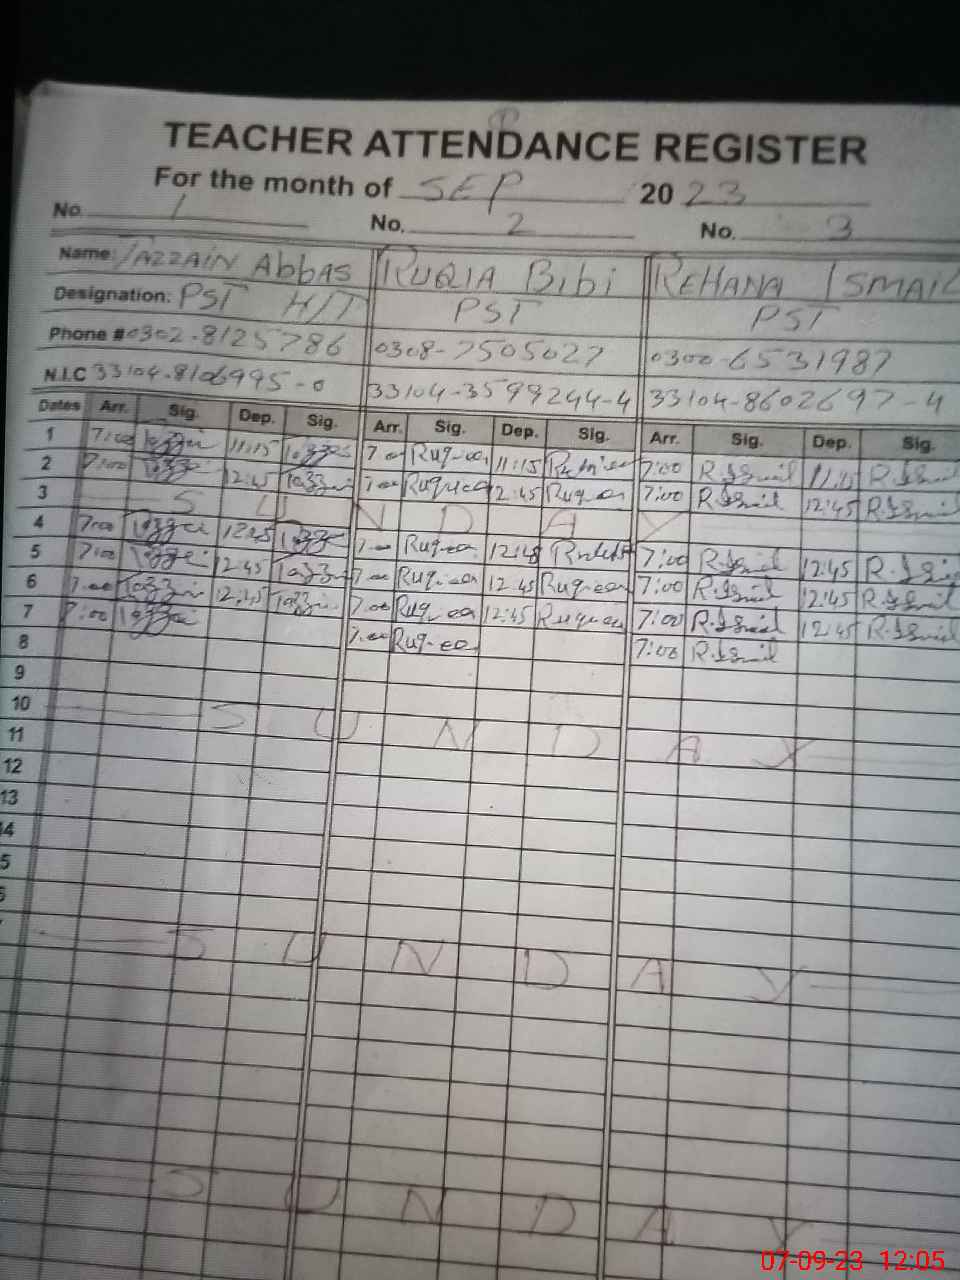 TEACHER ATTENDANCE REGISTER
For the month of SEP 2023
No. 1 No. 2 No. 3
Name: TAZZAIN ABBAS RUQIA BiBi REHANA ISMAIL
Designation: PST H/T PST PST
Phone # 0302-8125786 0308-7505027 0300-6531987
N.I.C 33104-8106995-0 33104-3599244-4 33104-8602697-4
Dates Arr. Sig. Dep. Sig. Arr. Sig. Dep. Sig. Arr. Sig. Dep. Sig.
1 7:00 11:15 7:00 Ruqea 11:15 7:00 R.Ismail R.Ismail
2 7:00 12:45 7:00 Ruqea 12:45 Ruqea 7:00 R.Ismail 12:45 R.Ismail
3 SUNDAY
4 7:00 7:00 Ruqea 7:00 R.Ismail 12:45 R.Ismail
5 7:00 12:45 7:00 Ruqea 12:45 Ruqea 7:00 R.Ismail 12:45 R.Ismail
6 7:00 12:45 7:00 Ruqea 12:45 Ruqea 7:00 R.Ismail 12:45 R.Ismail
7 7:00 7:00 Ruqea 7:00 R.Ismail
8
9
10 SUNDAY
11
12
13
SUNDAY
SUNDAY
07-09-23 12:05